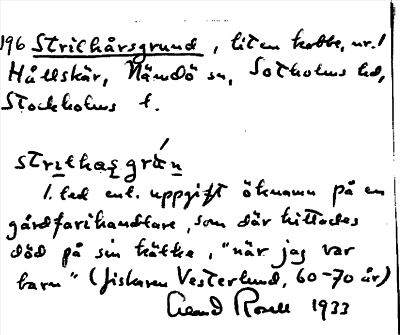 196 Strilhårsgrund, liten kobbe, nr. 1
Hållskär, Nämdö sn, Sotholms hd,
Stockholms l.
strilhasgrún
1. led enl. uppgift öknamn på en
gårdfarihandlare, som där hittades
död på sin kälke, "när jag var
barn" (fiskaren Vesterlund, 60-70 år)
Rosell 1933